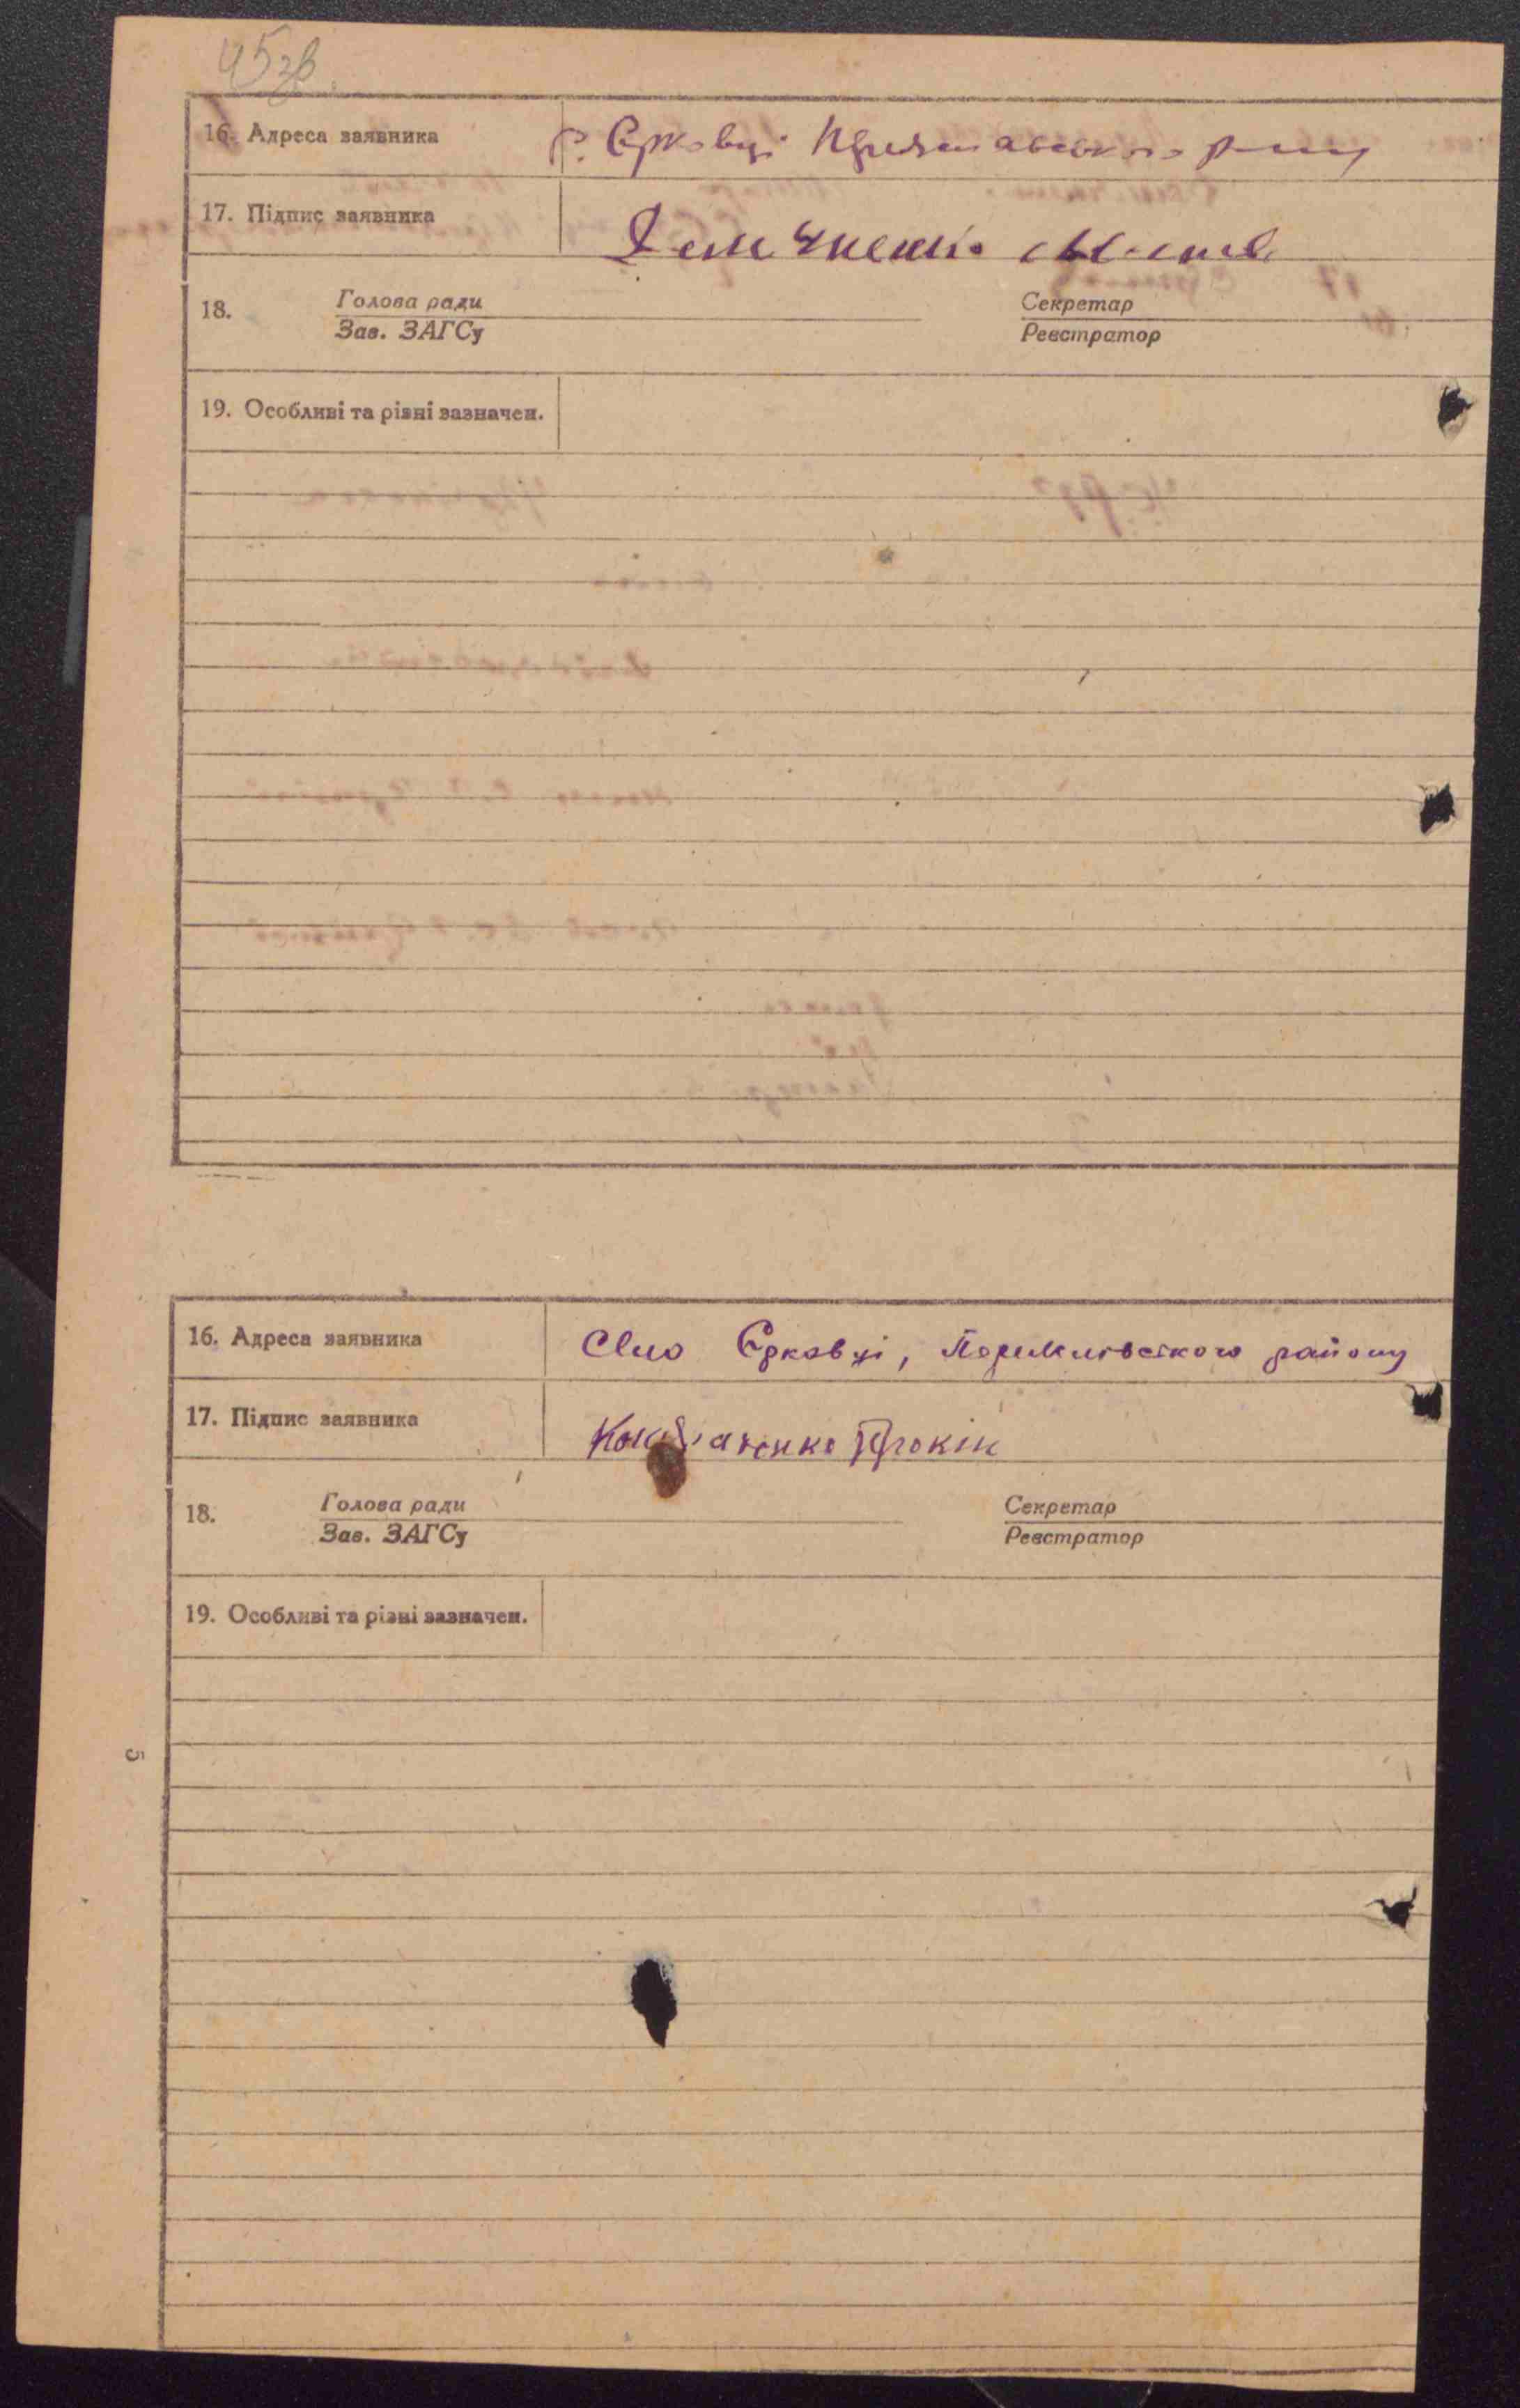 45зв.
16. Адреса заявника с. Єрковці
17. Підпис заявника
18. Голова ради Секретар
Зав. ЗАГСу Реєстратор
19. Особливі та різні зазначен.
16. Адреса заявника Село Єрковці, району
17. Підпис заявника Прокіп
18. Голова ради Секретар
Зав. ЗАГСу Реєстратор
19. Особливі та різні зазначен.
5